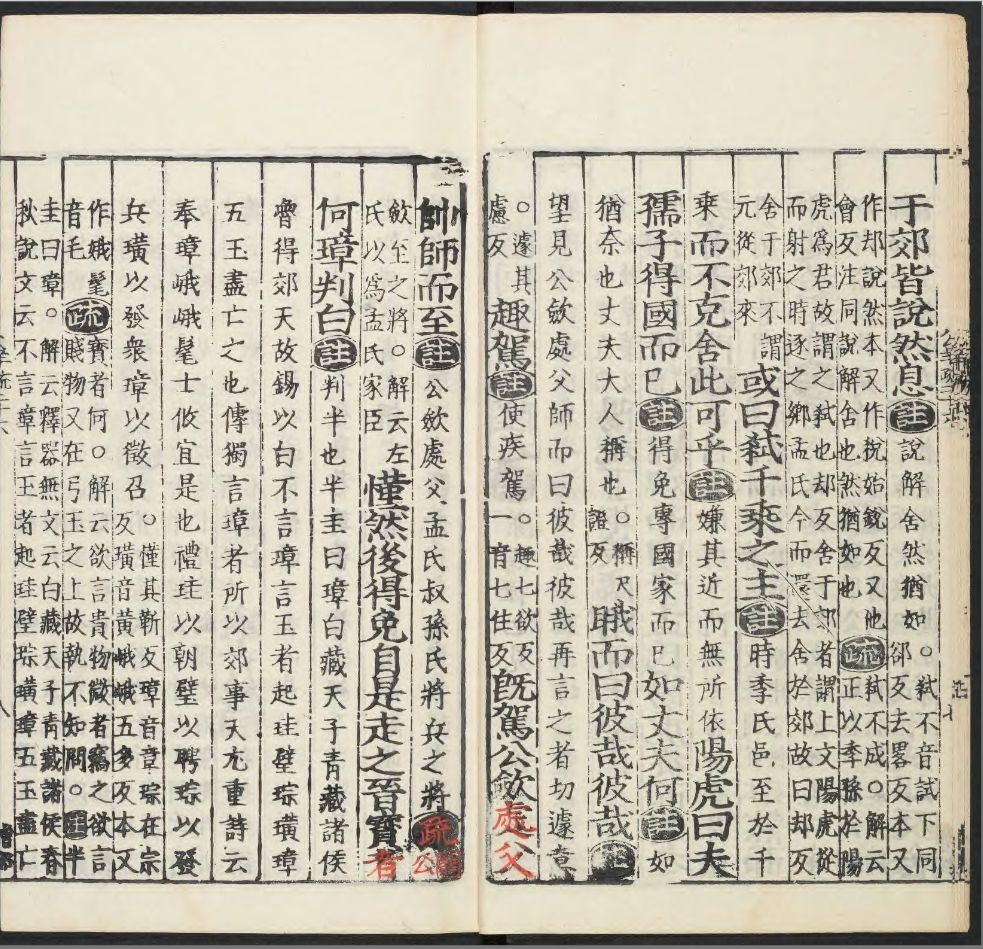 于郊皆說然息註說解舍然猶如○弒不音試下同
郤反去畧反本又
作却說然本又作稅始銳反又他
會反注同說解舍也然猶如也疏弒不成○解云
正以季孫於陽
虎為君故謂之弒也却反舍于郊者謂上文陽虎從
而射之時逐之鄉孟氏今而還去舍於郊故曰却反
舍于郊不謂
元從郊來或曰弒千乘之主註時季氏邑至於千
乘而不克舍此可乎註嫌其近而無所依陽虎曰夫
孺子得國而已註得免專國家而已如丈夫何註如
猶奈也丈夫大人稱也○稱尺
證反睋而曰彼哉彼哉註
望見公斂處父師而曰彼哉彼哉再言之者切遽意
○遽其
慮反趣駕註使疾駕○趣七欲反
一音七住反既駕公斂處父
帥師而至註公斂處父孟氏叔孫氏將兵之將疏公
斂至之將○解云左
氏以為孟氏家臣慬然後得免自是走之晉寶者
何璋判白註判半也半圭曰璋白藏天子青藏諸侯
魯得郊天故錫以白不言璋言玉者起珪璧琮璜璋
五玉盡亡之也傳獨言璋者所以郊事天尤重詩云
奉璋峨峨髦士攸宜是也禮珪以朝璧以聘琮以發
兵璜以發衆璋以徵召○慬其靳反璋音章琮在宗
反璜音黃峨峨五多反本又
作娥髦
音毛疏寶者何○解云欲言貴物微者竊之欲言
賤物又在弓玉之上故執不知問○註半
圭曰章○解云釋器無文云白藏天子青藏諸侯春
秋說文云不言璋言玉者起珪璧琮璜璋五玉盡亡